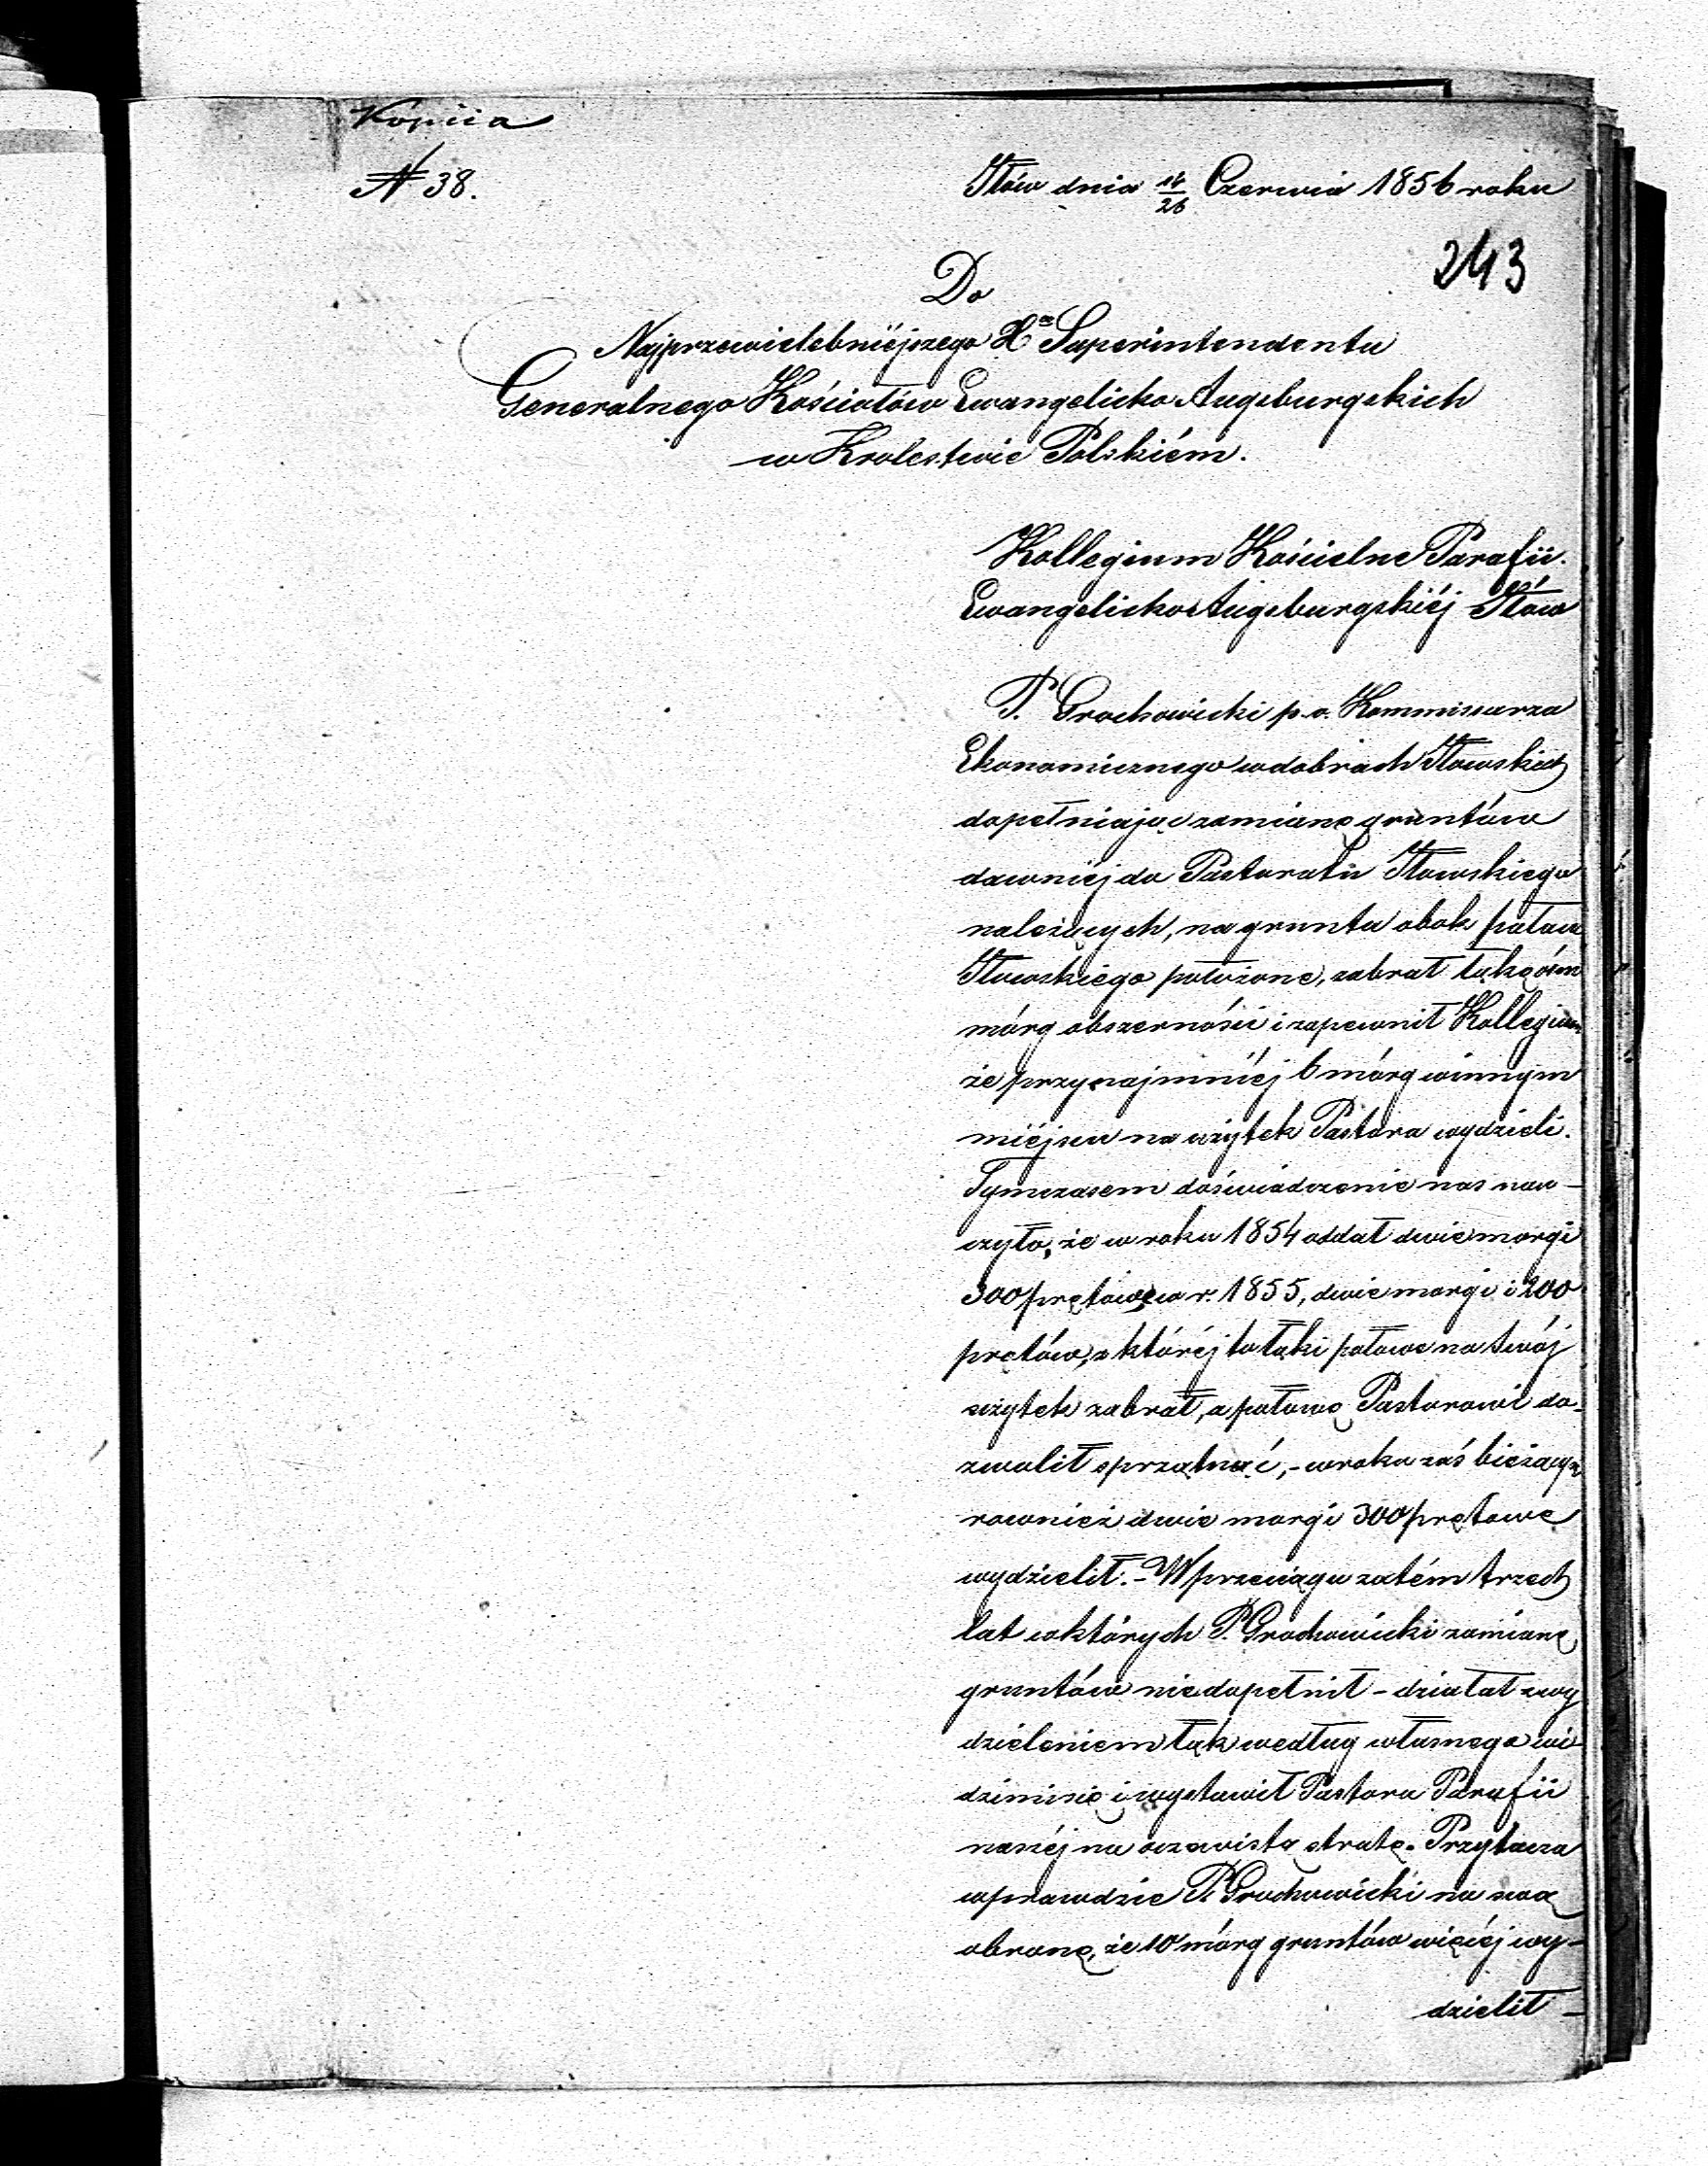 Kopiia
№ 38.
Iłów dnia 14/26 Czerwca 1856 roku
243
Do
Najprzewielebniéjszego Xa Superintendenta
Generalnego Kościołów Ewangelicko Augsburgskich
w Krolestwie Polskiém.
Kollegium Kościelne Parafii
Ewangelicko Augsburgskiéj Iłów
P. Grochowicki p. o. Kommissarza
Ekonomicznego w dobrach Iłowskich
dopełniając zamianę gruntów
dawniéj do Pastoratu Iłowskiego
należących, na grunta obok pałacu
Iłowskiego położone, zabrał łąkę ośm
mórg obszerności i zapewnił Kollegium
że przynajmniéj 6 mórg w innym
miéjscu na użytek Pastora wydzieli.
Tymczasem doświadczenie nas nau-
czyło, że w roku 1854 oddał dwie morgi
300 prętowe w r. 1855, dwie morgi i 200
prętów, z któréj to łąki połowę na swój
użytek zabrał, a połowę Pastorowi do-
zwolił sprzątnąć, - w roku zaś bieżącym
rownież dwie morgi 300 prętowe
wydzielił. - W przeciągu zatém trzech
lat w których P. Grochowicki zamianę
gruntów niedopełnił - działał z wy
dzieleniem łąk według własnego wi
dzimisię i wystawił Pastora Parafii
naszéj na oczewistą stratę. Przytacza
wprawdzie P. Grochowicki na swą
obronę, że 10 mórg gruntów więcéj wy-
dzielił -